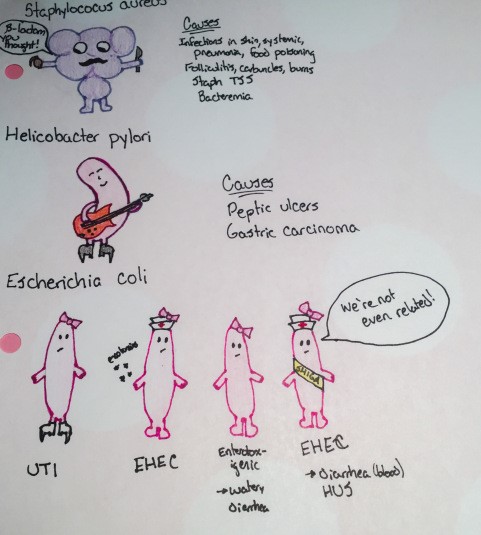 Staphylococus aureus
B-lactam
you
thought!
Causes
Infections in skin, systemic,
pneumonia, food poisoning
Folliculitis, carbuncles, burns
Staph TSS
Bacteremia
Helicobacter pylori
Causes
Peptic ulcers
Gastric carcinoma
Escherichia coli
We're not
even related!!
exotoxins
SHIGA
UTI
EHEC
Enterotox-
igenic
→ watery
Diarrhea
EHEC
→ Diarrhea (blood)
HUS